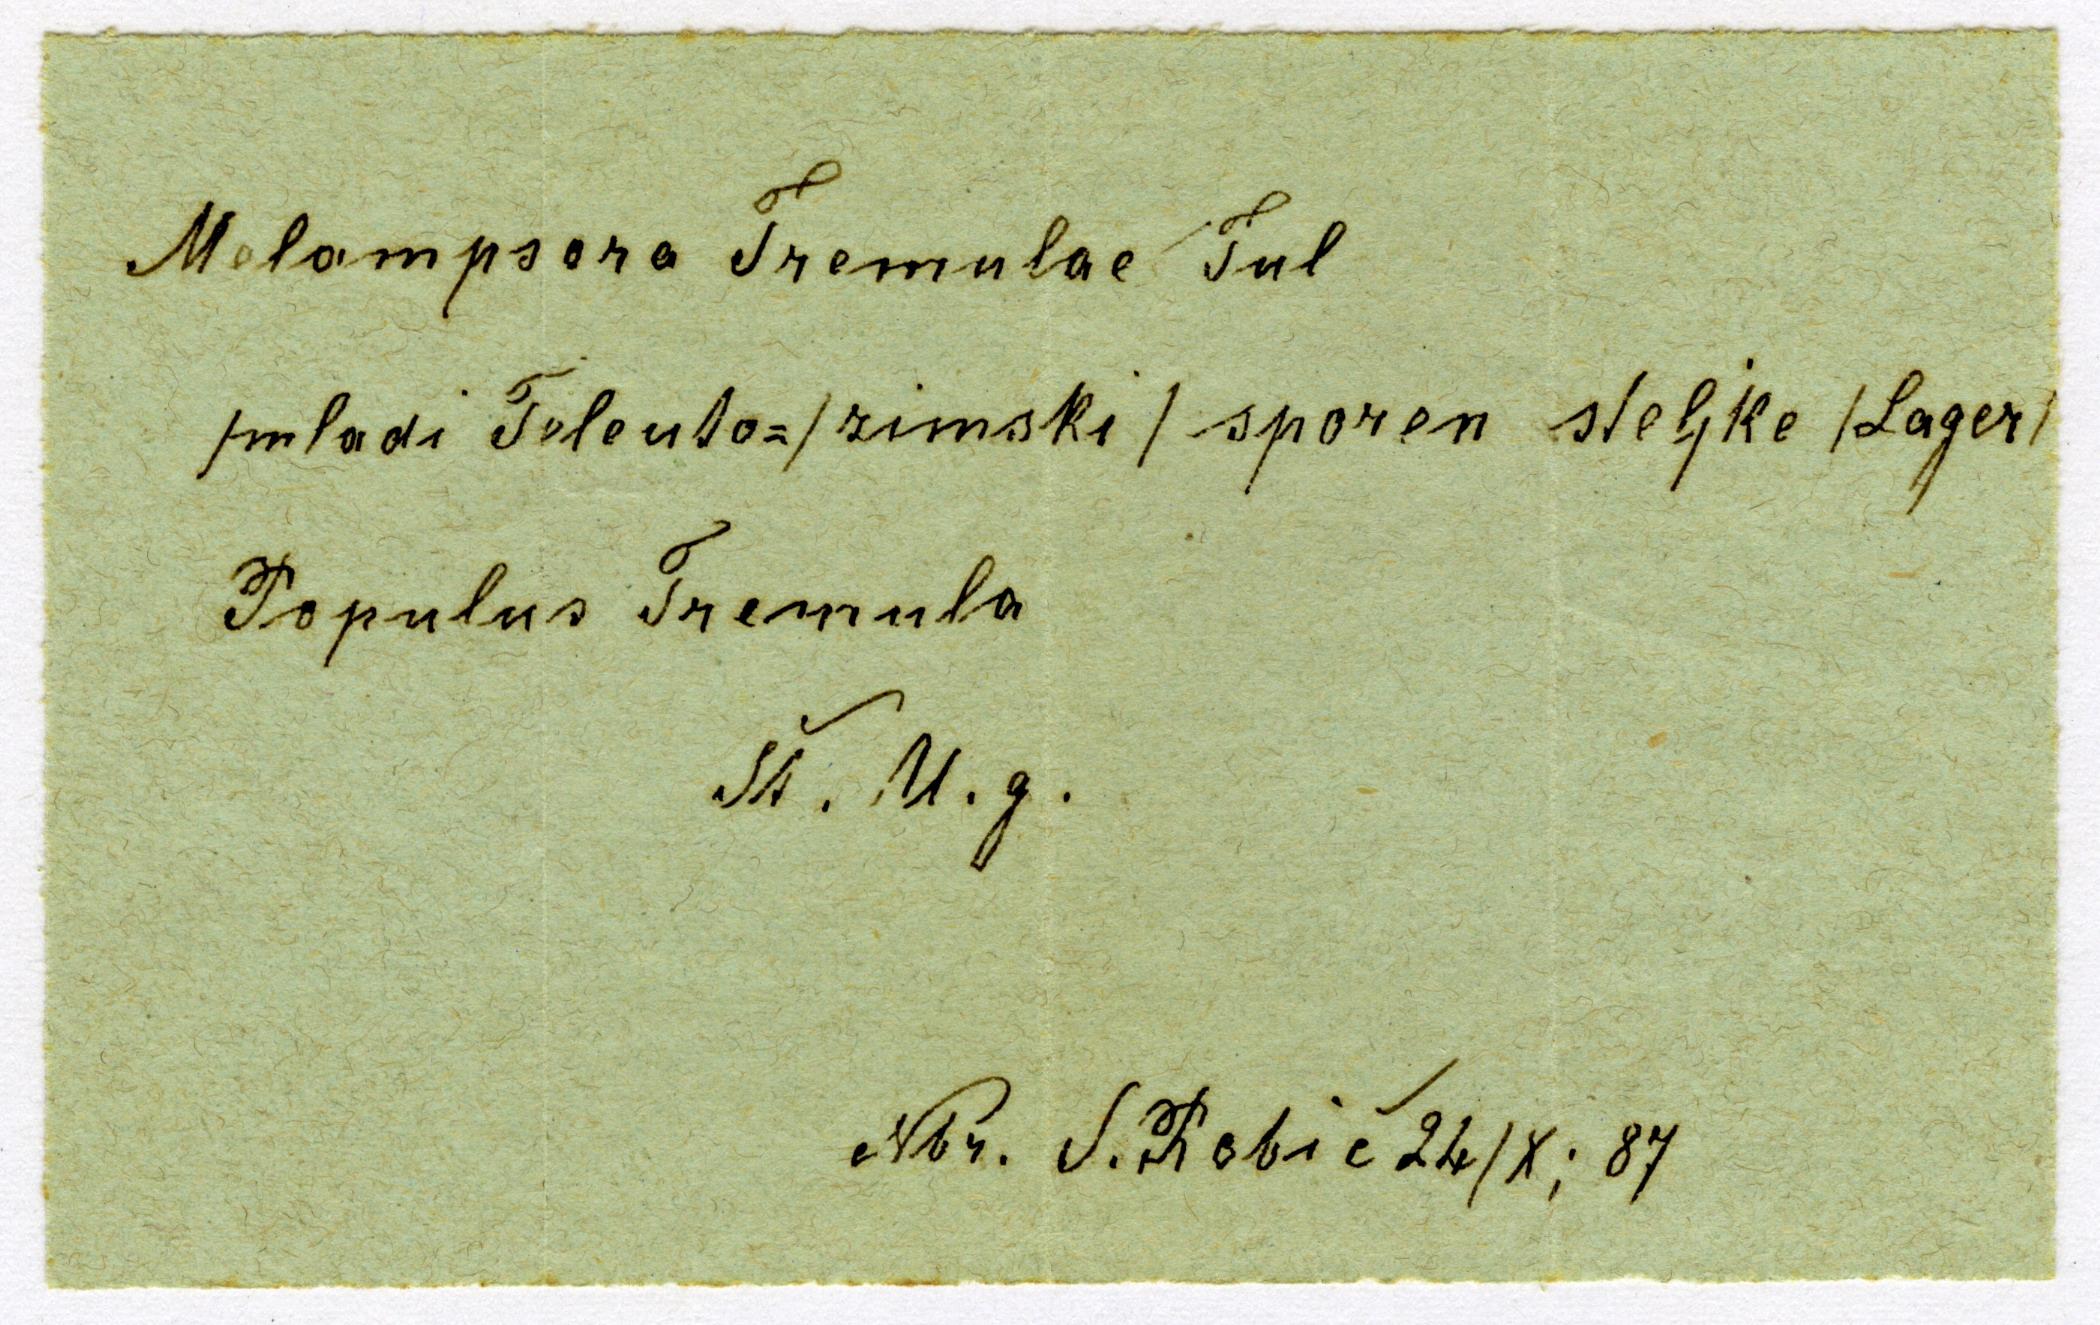 Melampsora Tremulae Tul
/mladi Teleuto=/zimski/ sporen steljke /Lager/
Populus Tremula
Šť. U. g.
Nbr. S. Robič 24/X; 87